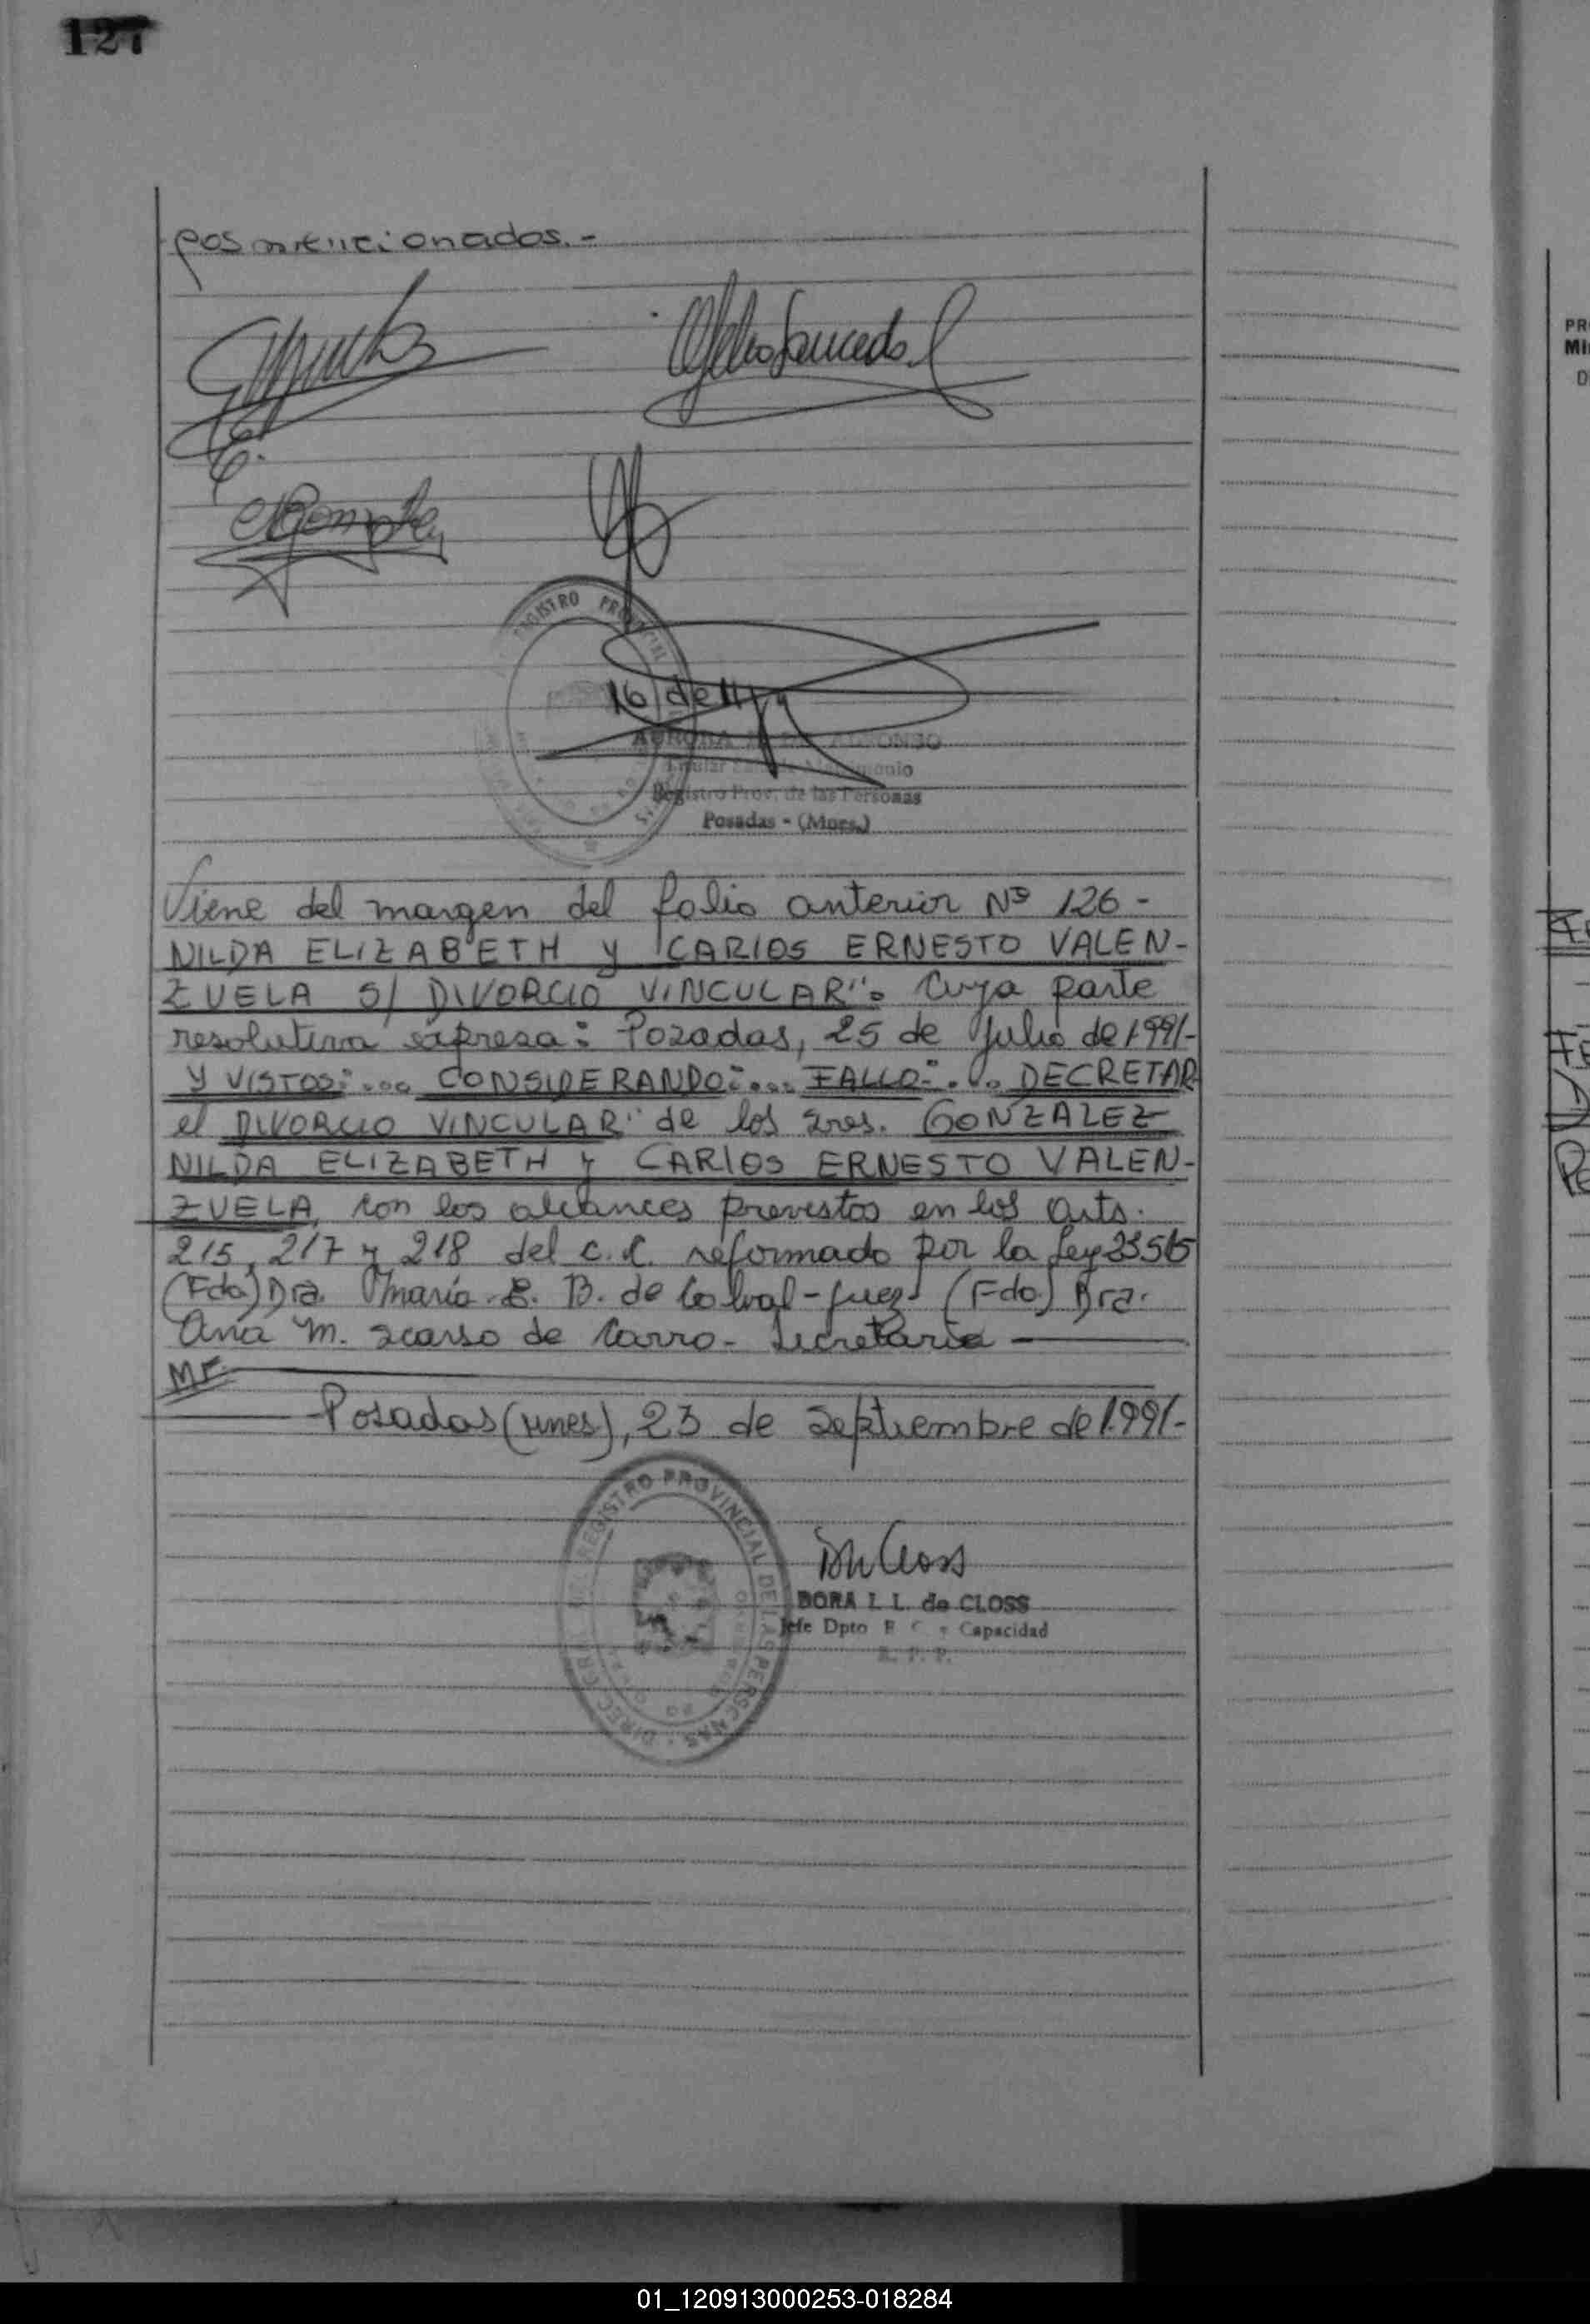 127
pos mencionados.-
16 de
AURORA ALFONSO
Titular
Registro Prov. de las Personas
Posadas - (Mnes.)
REGISTRO PROVINCIAL
Viene del margen del folio anterior Nº 126 -
NILDA ELIZABETH y CARLOS ERNESTO VALEN-
ZUELA S/ DIVORCIO VINCULAR". Cuya parte
resolutiva expresa: Posadas, 25 de Julio de 1991-
Y VISTOS:... CONSIDERANDO:... FALLO:... DECRETAR
el DIVORCIO VINCULAR" de los sres. GONZALEZ
NILDA ELIZABETH y CARLOS ERNESTO VALEN-
ZUELA, con los alcances previstos en los arts.
215, 217 y 218 del C.C. reformado por la Ley 23515
(Fdo) Dra. María E. B. de - Juez (Fdo.) Dra.
Ana M. Scarso de Carro - Secretaria
MF.
Posadas (mnes), 23 de Septiembre de 1.991.-
REGISTRO PROVINCIAL DE LAS PERSONAS
DORA I. L. de CLOSS
Jefe Dpto E C y Capacidad
R. P. P.
PR
MI
D
01_120913000253-018284